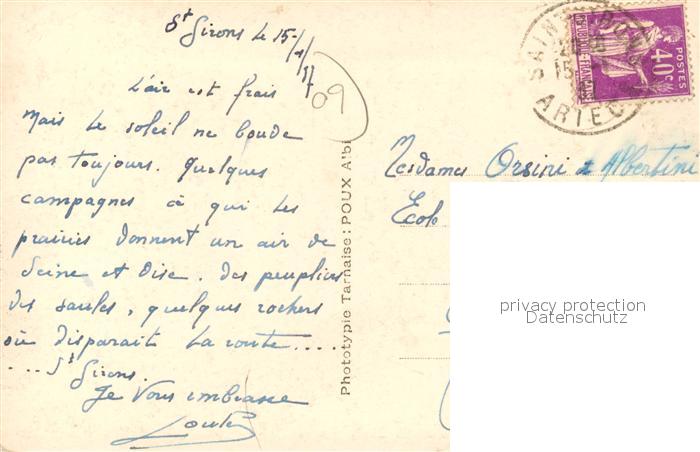 St Girons le 15/1/37
09
L'air est frais
mais le soleil ne boude
pas toujours. Quelques
campagnes à qui les
prairies donnent un air de
Seine et Oise. des peupliers
des saules, quelques rochers
où disparait la route....
... St Girons.
Je vous embrasse
Phototypie Tarnaise : POUX Albi
SAINT-GIRONS
15
ARIEGE
POSTES
40c
REPUBLIQUE FRANÇAISE
Mesdames Orsini et Albertini
Ecole
privacy protection
Datenschutz